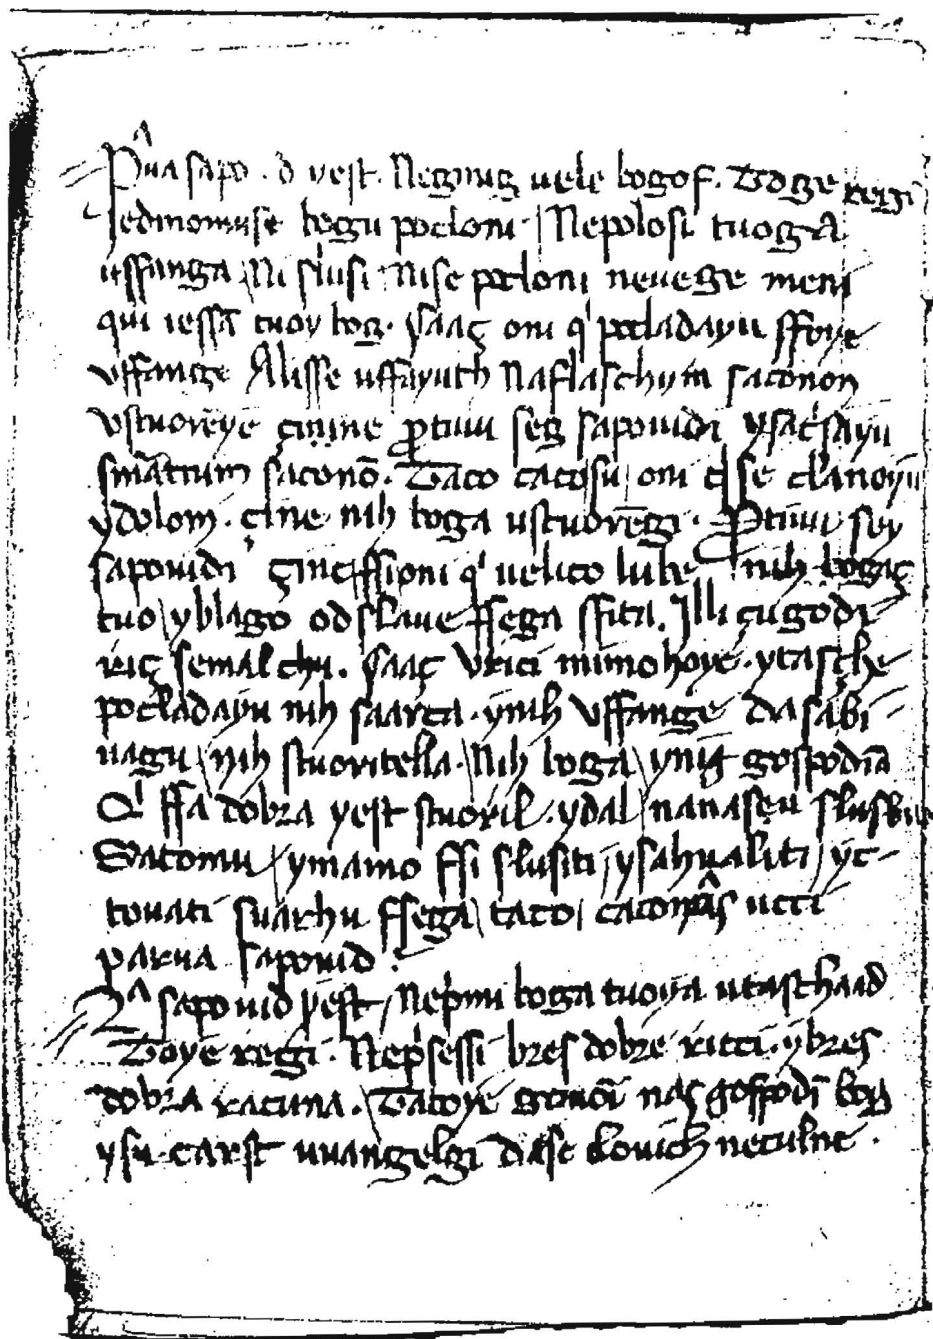 Pᵃua sapo . d yest . Negmug uele bogof . Todge regi
Jedinomuse bogu pocloni / Nepolosi tuoga
uffanga / Ni slusi Nise pocloni neuege meni
qui iessā tuoy bog . saaç oni q' pocladayu ffoye
vffange Alisse uffayuth Naflaschym saconon
vstuoreye çinine ꝓtiui seg sapouidi ysat'sayu
smātrum saconō . Taco cacosu oni clānoyu
ydolom . çine nih boga ustuorēgi . Ptiui sey
sapouidi çine ffioni q' uelico nih bogaç
tuo / yblago od slaue ffega ffita . Jlli çugodi
riç semalchu . saaç vrici mimohoye . ytasche
pocladayu nih saarça . ynih vffange da sabi
uagu / nih stuoritella . Nih boga / ynig gospodīa
Q' ffa dobra yest stuoril . ydal / nanasçu slusbu
Satomu / ymamo ffi slusiti / ysahualiti / yc
touati suarhu ffega / taco / ucci
parua sapouid .
2ᵃ sapouid yest / Neprimi boga tuoya utaschaad
Toye regi . Nep'sessi bres dobre ricci . ybres
dobra racuna . Tacoye gouori naç gosspodī bog
ysu carst uuangelgi douich neculne .